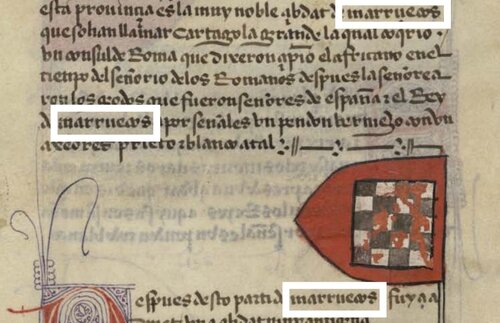 esta prouinçia es la muy noble çibdat de marruecos
que solian llamar Cartago la grande la qual conqrio
vn consul de Roma que dixeron çipio el africano en el
tiempo del señorio delos Romanos despues la señorea
ron los godos que fueron señores de españa τ el Rey
de marruecos a por señales vn pendon bermejo con vn
axedres prieto τ blanco atal
Despues desto parti de marruecos